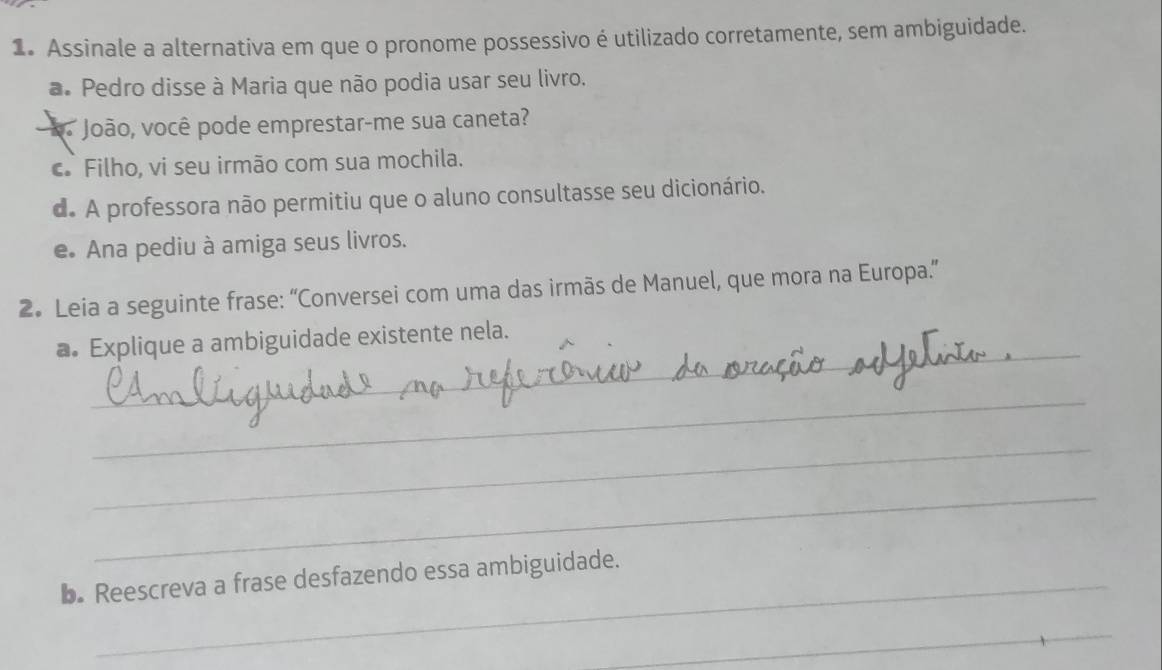 1. Assinale a alternativa em que o pronome possessivo é utilizado corretamente, sem ambiguidade.
a. Pedro disse à Maria que não podia usar seu livro.
b. João, você pode emprestar-me sua caneta?
c. Filho, vi seu irmão com sua mochila.
d. A professora não permitiu que o aluno consultasse seu dicionário.
e. Ana pediu à amiga seus livros.
2. Leia a seguinte frase: “Conversei com uma das irmãs de Manuel, que mora na Europa.”
a. Explique a ambiguidade existente nela.
Ambiguidade na referência da oração adjetiva.
b. Reescreva a frase desfazendo essa ambiguidade.